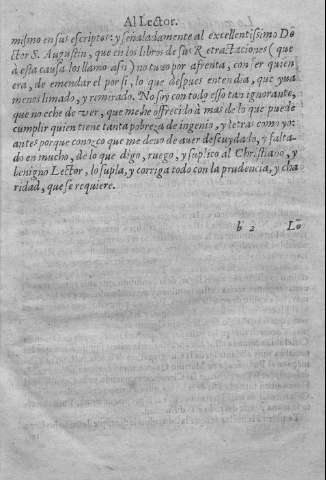 Al Lector.
mismo en sus escriptos: y señaladamente al excellentissimo Do
ctor S. Augustin, que en los libros de sus Retractaciones (que
à esta causa los llamo assi) no tuvo por afrenta, con ser quien
era, de emendar el por si, lo que despues entendia, que yua
menos limado, y remirado. No soy con todo esso tan ignorante,
que no eche de ver, que me he offrecido à mas de lo que puede
cumplir quien tiene tanta pobreza de ingenio, y letras como yo:
antes porque conozco que me deuo de auer descuydado, y falta-
do en mucho, de lo que digo, ruego, y suplico al Christiano, y
benigno Lector, lo supla, y corriga todo con la prudencia, y cha
ridad, que se requiere.
b 2 Lo